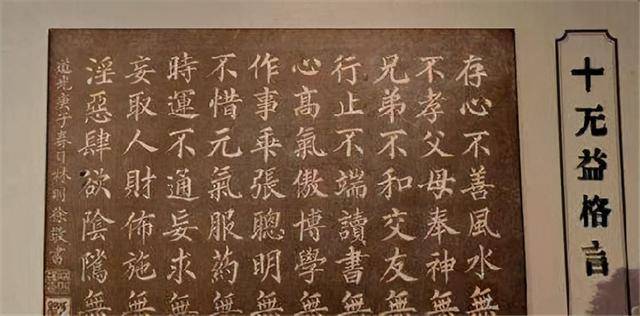 十无益格言
存心不善風水無
不孝父母奉神無
兄弟不和交友無
行止不端讀書無
心高氣傲博學無
作事乖張聰明無
不惜元氣服藥無
時運不通妄求無
妄取人財佈施無
淫惡肆欲陰隲無
道光庚子春日林則徐敬書